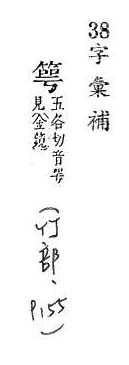 38字彙補
五各切音
見金
(竹部、P.155)